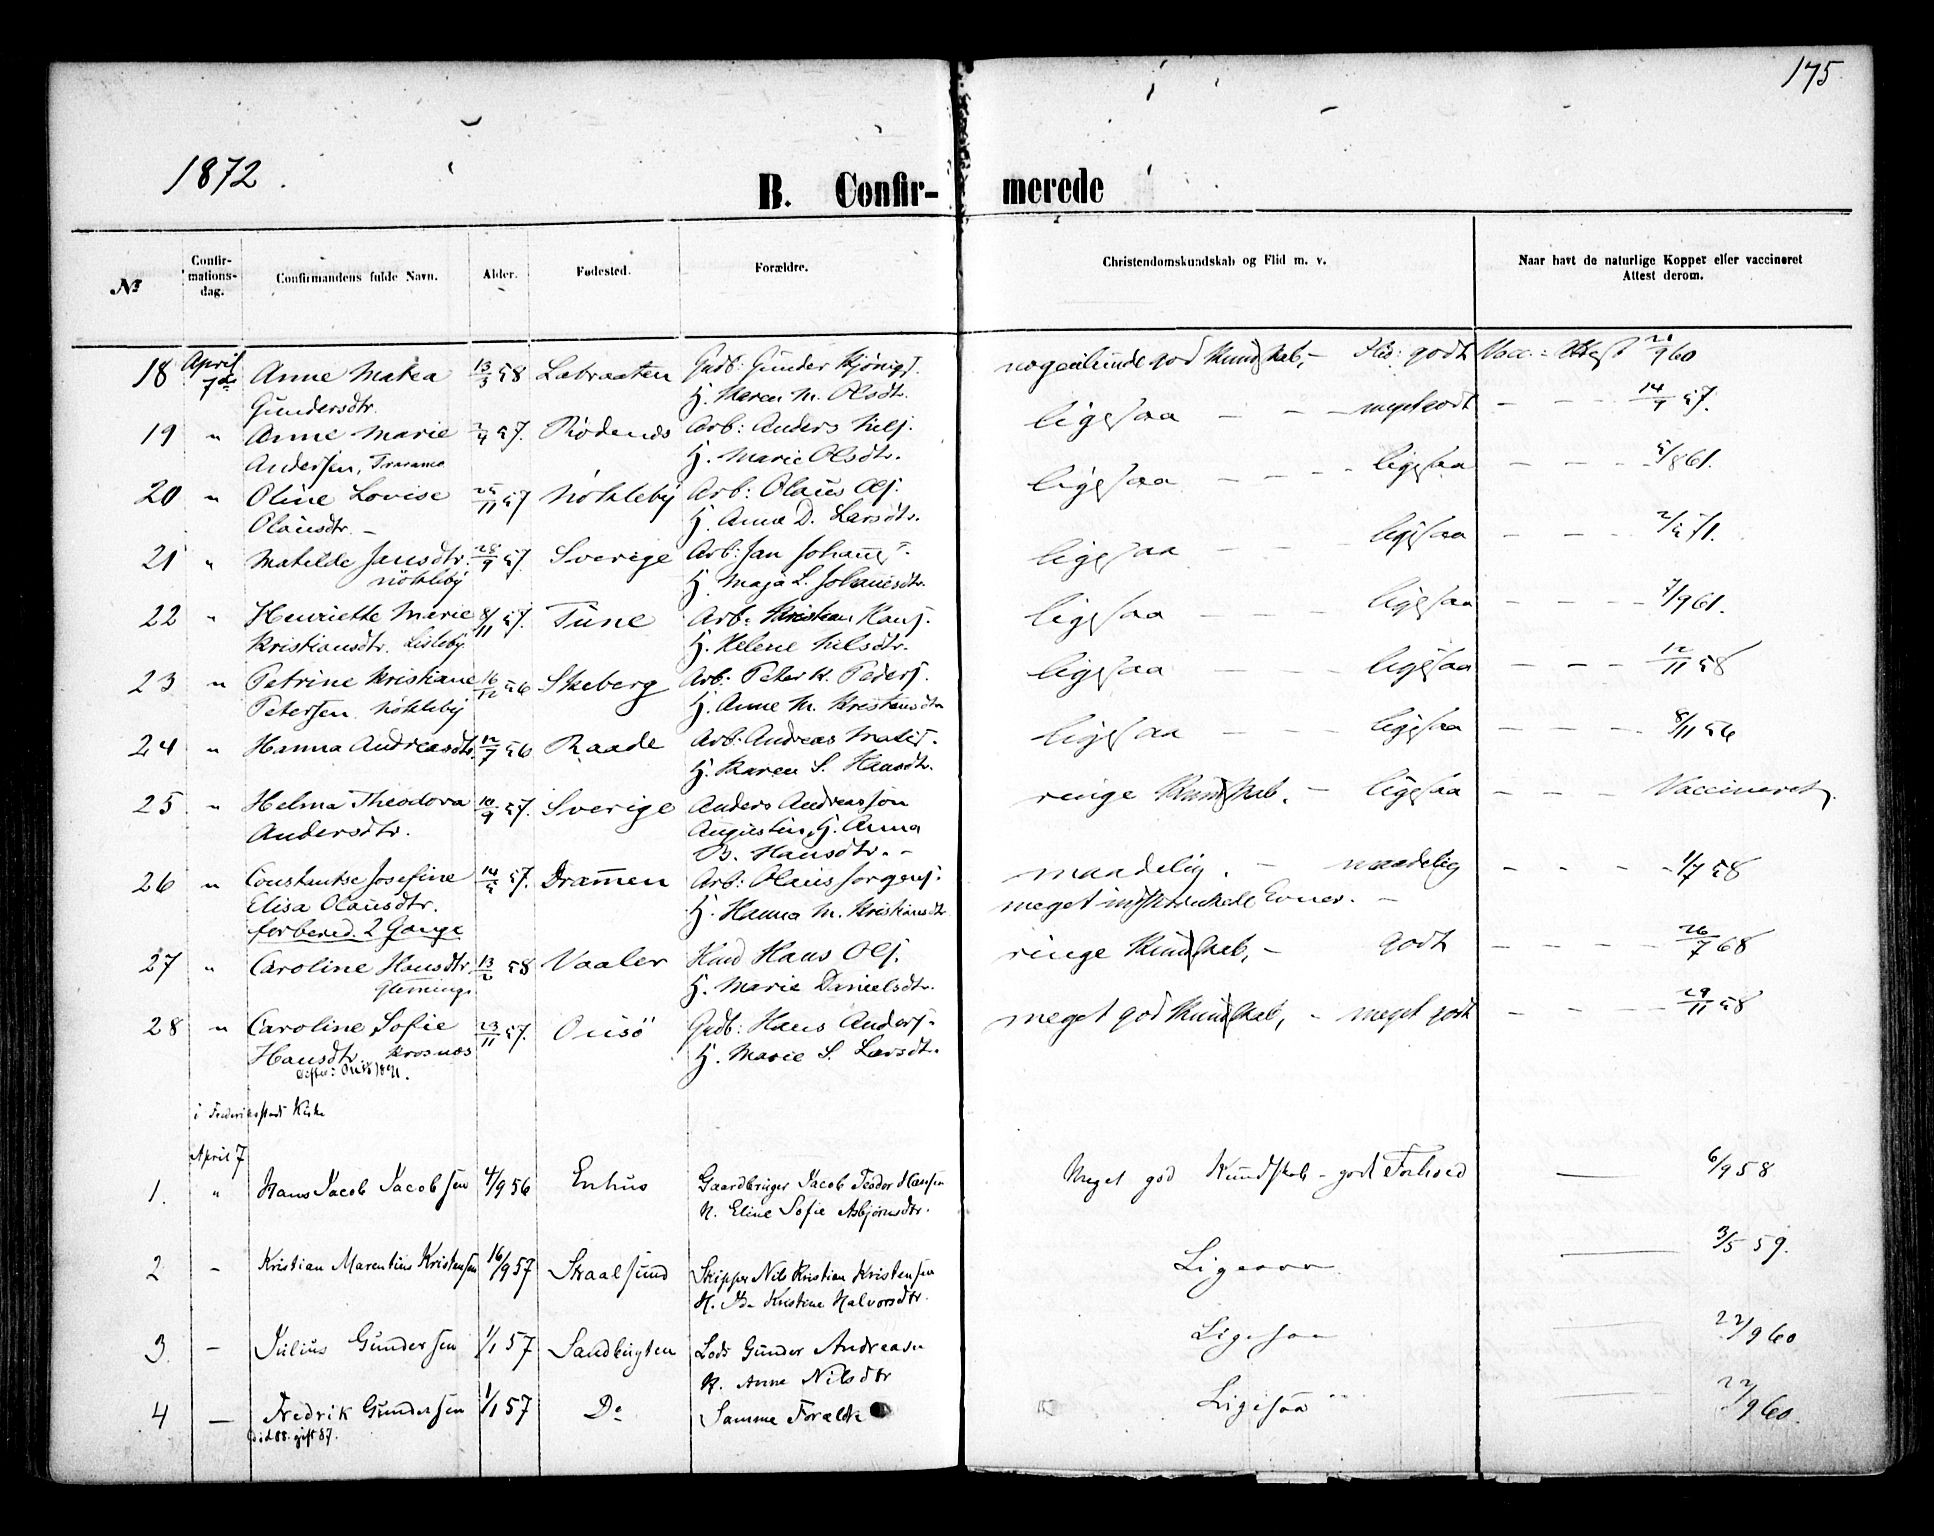 175
1872.
B. Confir- merede
№ Confir-mations-dag. Confirmandens fulde Navn. Alder. Fødested. Forældre. Christendomskundskab og Flid m. v. Naar havt de naturlige Kopper eller vaccineret Attest derom.
18 April 7de Anne Matea 13/3 58 Labraaten Gdb: Gunder Kjønigs. nogenlunde god Kundskab, - Flid: godt Vacc: Attest 21/9 60
Gundersdtr. H. Karen M. Olsdtr.
19 " Anne Marie 57. Rødenes Arb: Anders Nils. ligesaa - - - meget godt - - - 14/9 57.
Andersen, H. Marie Olsdtr.
20 " Oline Lovise 25/11 57 Nökleby Arb: Olaus Ols. ligesaa - - - ligesaa - - - 5/8 61.
Olausdtr. - H. Anne D. Larsdtr.
21 " Matilde Jansdtr. 28/9 57. Sverige Arb: Jan Johans. ligesaa - - ligesaa - - - 2/5 71.
Nökleby H. Maja L. Johansdtr.
22 " Henriette Marie 8/11 57. Tune Arb: Kristian Hans. ligesaa - - ligesaa - - - 7/9 61.
Kristiansdtr. Lisleby H. Helene Nilsdtr.
23 " Petrine Kristiane 16/12 56 Skeberg Arb: Peter K. Peders. ligesaa - - ligesaa - - - 12/11 58
Petersen. Nökleby H. Anne M. Kristensdtr
24 " Hanna Andreasdtr. 12/7 56 Raade Arb: Andreas Mats. ligesaa - - - ligesaa - - - 8/11 56
H. Karen S. Hansdtr.
25 " Helma Theodora 10/9 57. Sverige Anders Andreasson ringe Kundskab. - ligesaa - - - Vaccineret.
Andersdtr. Augustin, H. Anna
B. Hansdtr. -
26 " Constantse Josefine 14/5 57. Drammen Arb: Olaus Jørgens. maadelig. - maadelig - - - 1/7 58
Elisa Olausdtr. H. Hanna M. Kristiansdtr meget indskrænkede Evner. -
forbered. 2 Gange
27 " Caroline Hansdtr. 13/2 58 Vaaler Hmd Hans Ols. ringe Kundskab, - godt - - - 26/7 68
H. Marie Danielsdtr.
28 " Caroline Sofie 23/11 57. Onsö Gdb: Hans Anders. meget god Kundskab, - meget godt - - - 29/11 58
Hansdtr. Krosnæs H. Marie S. Larsdtr.
i Frederiksstads Kirke
April 7
1. " Hans Jacob Jacobsen 4/9 56 Enhus Gaardbruger Jacob Teodor Hansen Meget god Kundskab - god Forhold — 6/9 58
H. Eline Sofie Asbjørnsdtr.
2 - Kristian Marentius Kristensen 16/9 57 Skaalsund Skipper Nils Kristian Kristensen Ligesaa — 3/5 59.
H. Kristine Halvorsdtr.
3. - Julius Gundersen 1/1 57 Sandbugten Lods Gunder Andreasen Ligesaa — 22/9 60
H. Anne Nilsdtr
4 — Fredrik Gundersen 1/1 57 Do Samme Forældre Ligesaa 22/9 60.
gift 87.